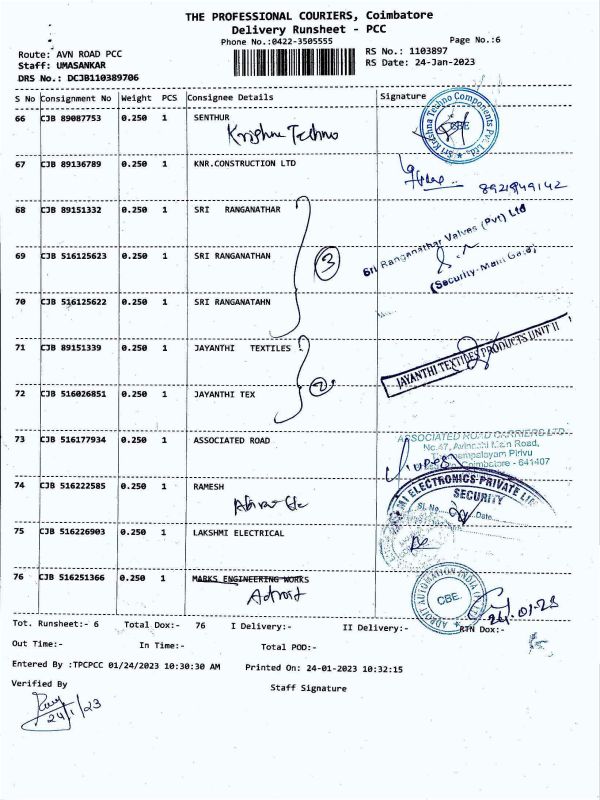 THE PROFESSIONAL COURIERS, Coimbatore
Delivery Runsheet - PCC
Phone No.:0422-3505555 Page No.:6
Route: AVN ROAD PCC RS No.: 1103897
Staff: UMASANKAR RS Date: 24-Jan-2023
DRS No.: DCJB110389706
S No Consignment No Weight PCS Consignee Details Signature
66 CJB 89087753 0.250 1 SENTHUR
Krishna Techno
Sri Krishna Techno Components Pvt. Ltd.
CBE
67 CJB 89136789 0.250 1 KNR.CONSTRUCTION LTD
68 CJB 89151332 0.250 1 SRI RANGANATHAR
69 CJB 516125623 0.250 1 SRI RANGANATHAN
3
Sri Ranganathar Valves (Pvt) Ltd
(Security-Main Gate)
70 CJB 516125622 0.250 1 SRI RANGANATAHN
71 CJB 89151339 0.250 1 JAYANTHI TEXTILES
JAYANTHI TEXTILES PRODUCTS UNIT II
72 CJB 516026851 0.250 1 JAYANTHI TEX
2
73 CJB 516177934 0.250 1 ASSOCIATED ROAD
ASSOCIATED ROAD CARRIERS LTD.
No.47, Avinashi Main Road,
Pirivu
Coimbatore - 641407
74 CJB 516222585 0.250 1 RAMESH
ELECTRONICS PRIVATE
SECURITY
SL No. Date
75 CJB 516226903 0.250 1 LAKSHMI ELECTRICAL
76 CJB 516251366 0.250 1 MARKS ENGINEERING WORKS
Adroit
ADROIT AUTOMATION INDIA
CBE
24.01.23
Tot. Runsheet:- 6 Total Dox:- 76 I Delivery:- II Delivery:- RTN Dox:-
Out Time:- In Time:- Total POD:-
Entered By :TPCPCC 01/24/2023 10:30:30 AM Printed On: 24-01-2023 10:32:15
Verified By Staff Signature
24/1/23